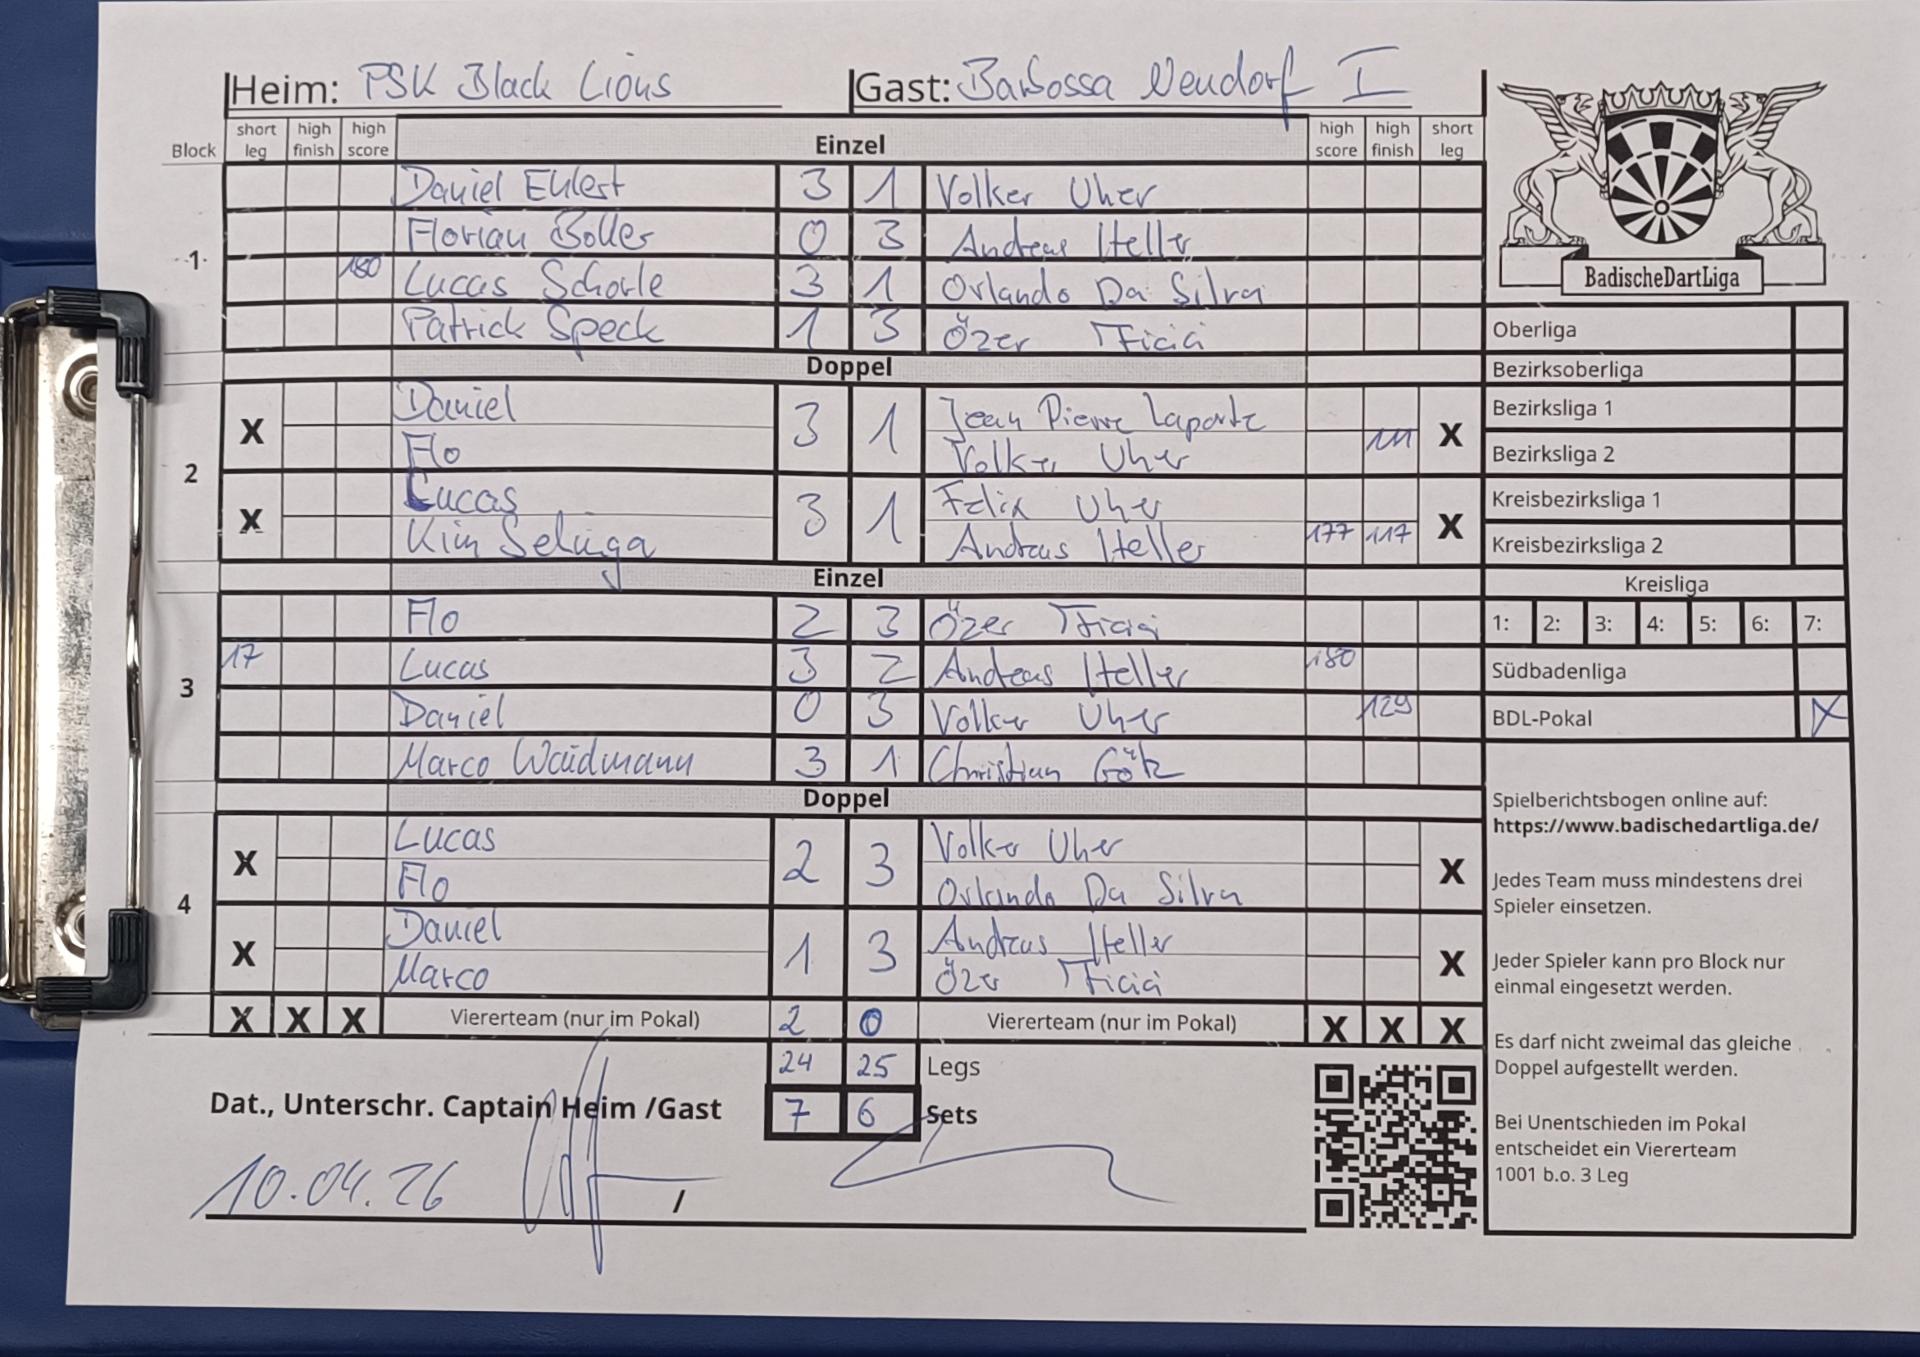 Heim: PSK Black Lions Gast: Barbossa Neudorf I
Block short leg high finish high score Einzel high score high finish short leg
1
Daniel Ehlert 3 1 Volker Uher
Florian Boller 0 3 Andreas Heller
180 Lucas Schorle 3 1 Orlando Da Silva
Patrick Speck 1 3 Özer
Doppel
2
X Daniel 3 1 Jean Pierre Laporte X
Flo Volker Uher 111
X Lucas 3 1 Felix Uher X
Kim Selinga Andreas Heller 177 117
Einzel
3
Flo 2 3 Özer
17 Lucas 3 2 Andreas Heller 180
Daniel 0 3 Volker Uher 129
Marco Waidmann 3 1 Christian Götz
Doppel
4
X Lucas 2 3 Volker Uher X
Flo Orlando Da Silva
X Daniel 1 3 Andreas Heller X
Marco Özer
X X X Viererteam (nur im Pokal) 2 0 Viererteam (nur im Pokal) X X X
24 25 Legs
Dat., Unterschr. Captain Heim /Gast 7 6 Sets
10.04.26 /
BadischeDartLiga
Oberliga
Bezirksoberliga
Bezirksliga 1
Bezirksliga 2
Kreisbezirksliga 1
Kreisbezirksliga 2
Kreisliga
1: 2: 3: 4: 5: 6: 7:
Südbadenliga
BDL-Pokal X
Spielberichtsbogen online auf:
https://www.badischedartliga.de/
Jedes Team muss mindestens drei
Spieler einsetzen.
Jeder Spieler kann pro Block nur
einmal eingesetzt werden.
Es darf nicht zweimal das gleiche
Doppel aufgestellt werden.
Bei Unentschieden im Pokal
entscheidet ein Viererteam
1001 b.o. 3 Leg